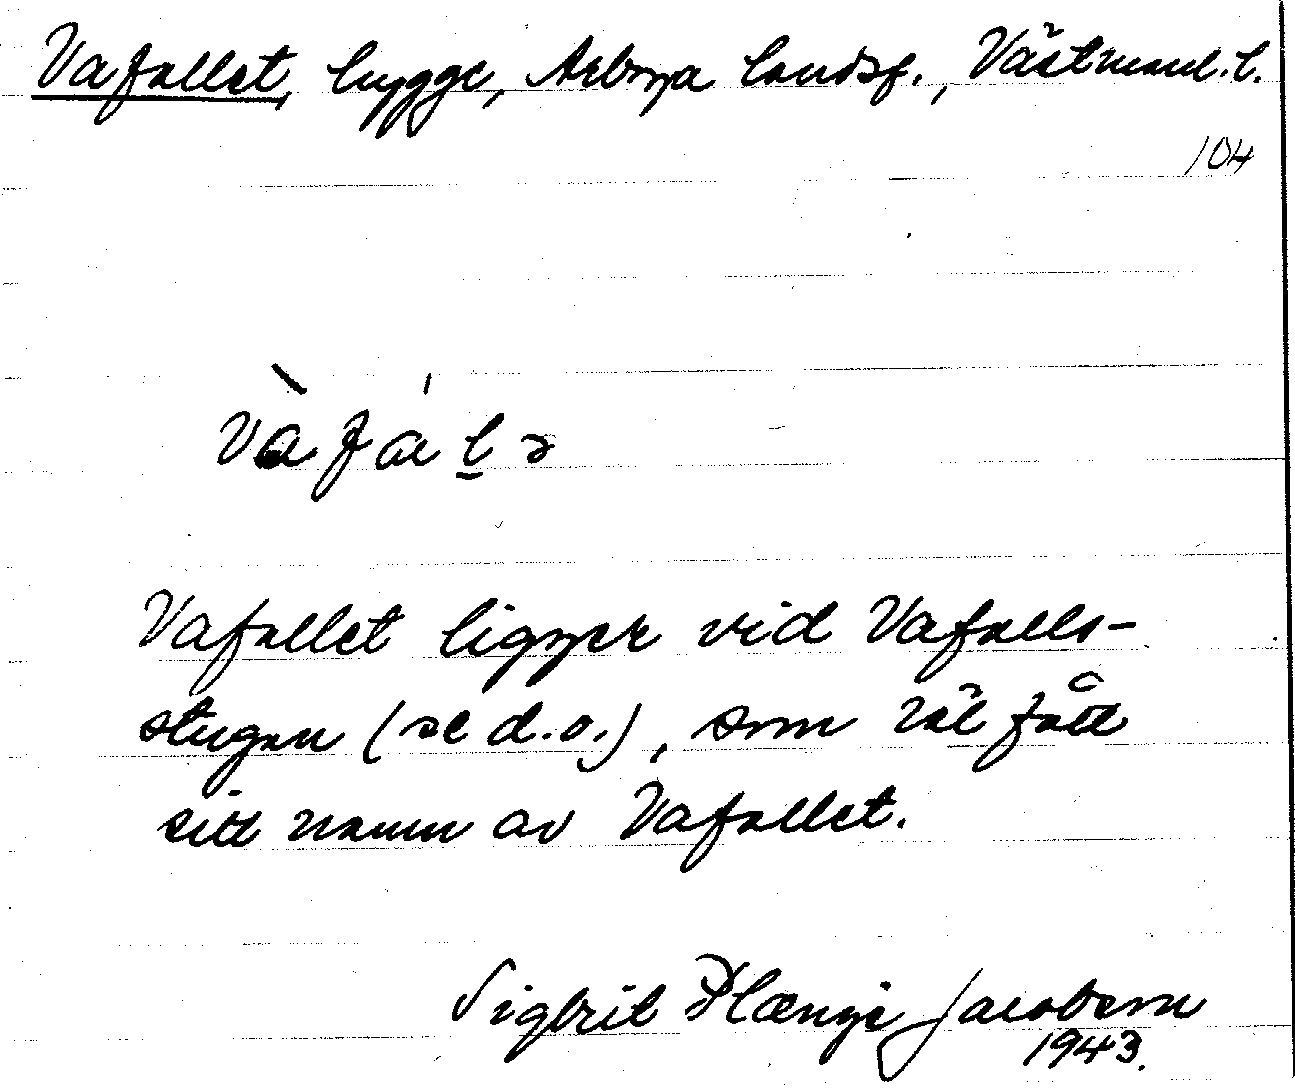 Vafallet, hygge, Arboga landsf., Västmanl. l.
104
và fá l ə
Vafallet ligger vid Vafalls-
stugan (se d.o.), som väl fått
sitt namn av Vafallet.
Sigbrit Plænge Jacobson
1943.